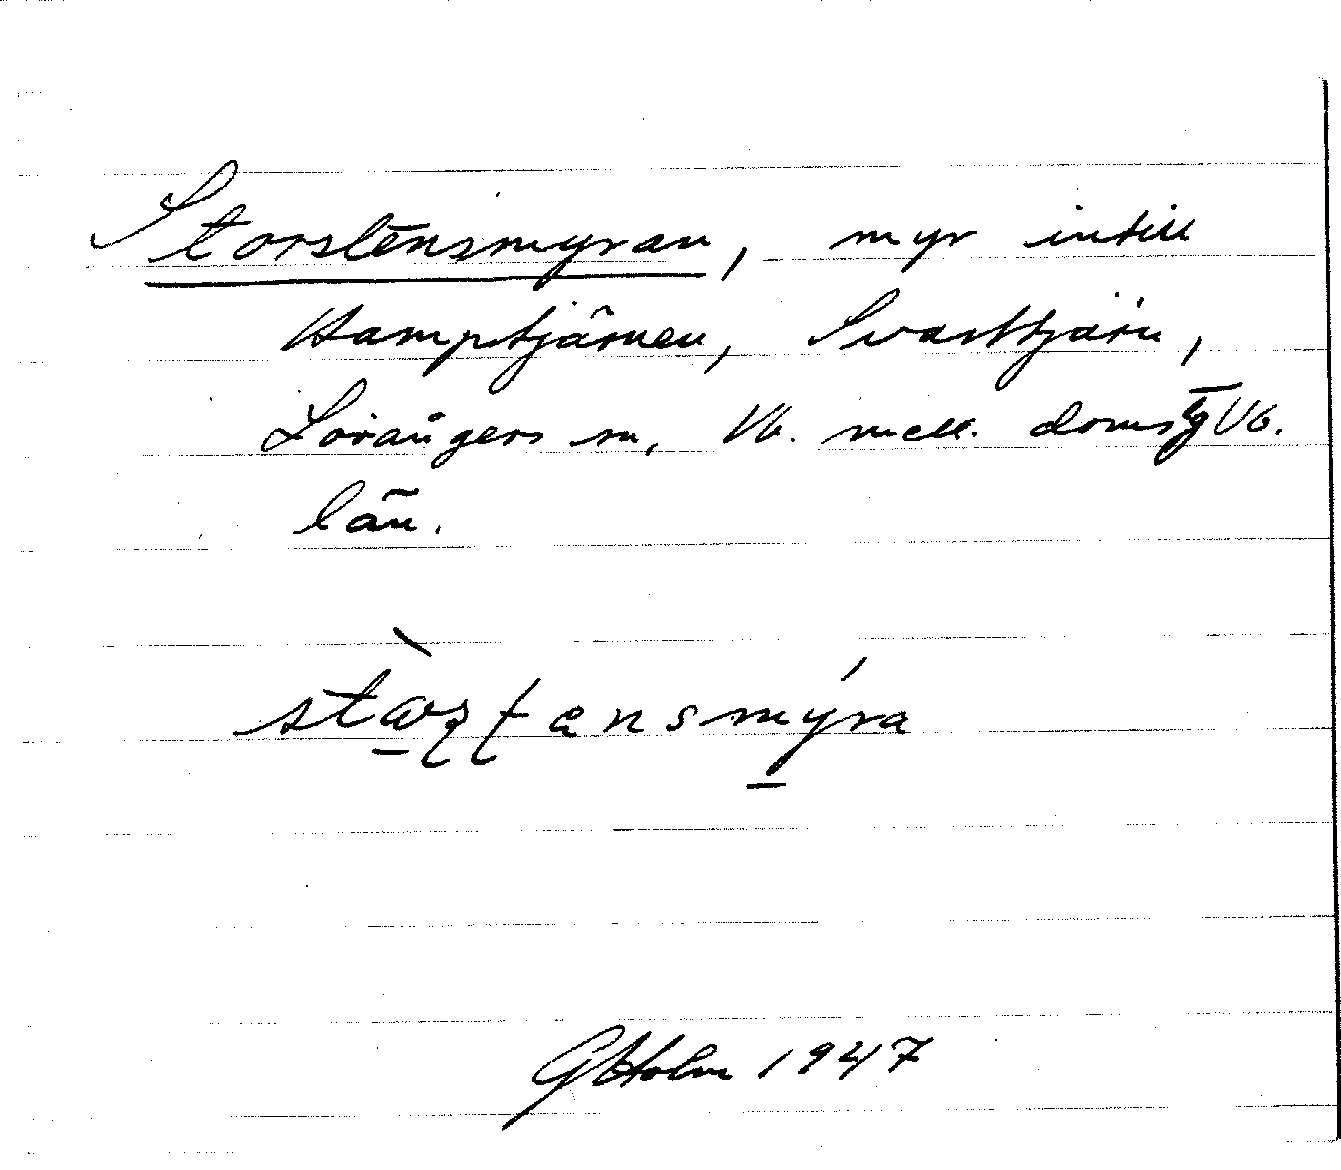 Storstensmyran, myr intill
Hamptjärnen, Svarttjärn,
Lövångers sn, Vb. mell. doms͞g Vb.
län.
Gösta Holm 1947